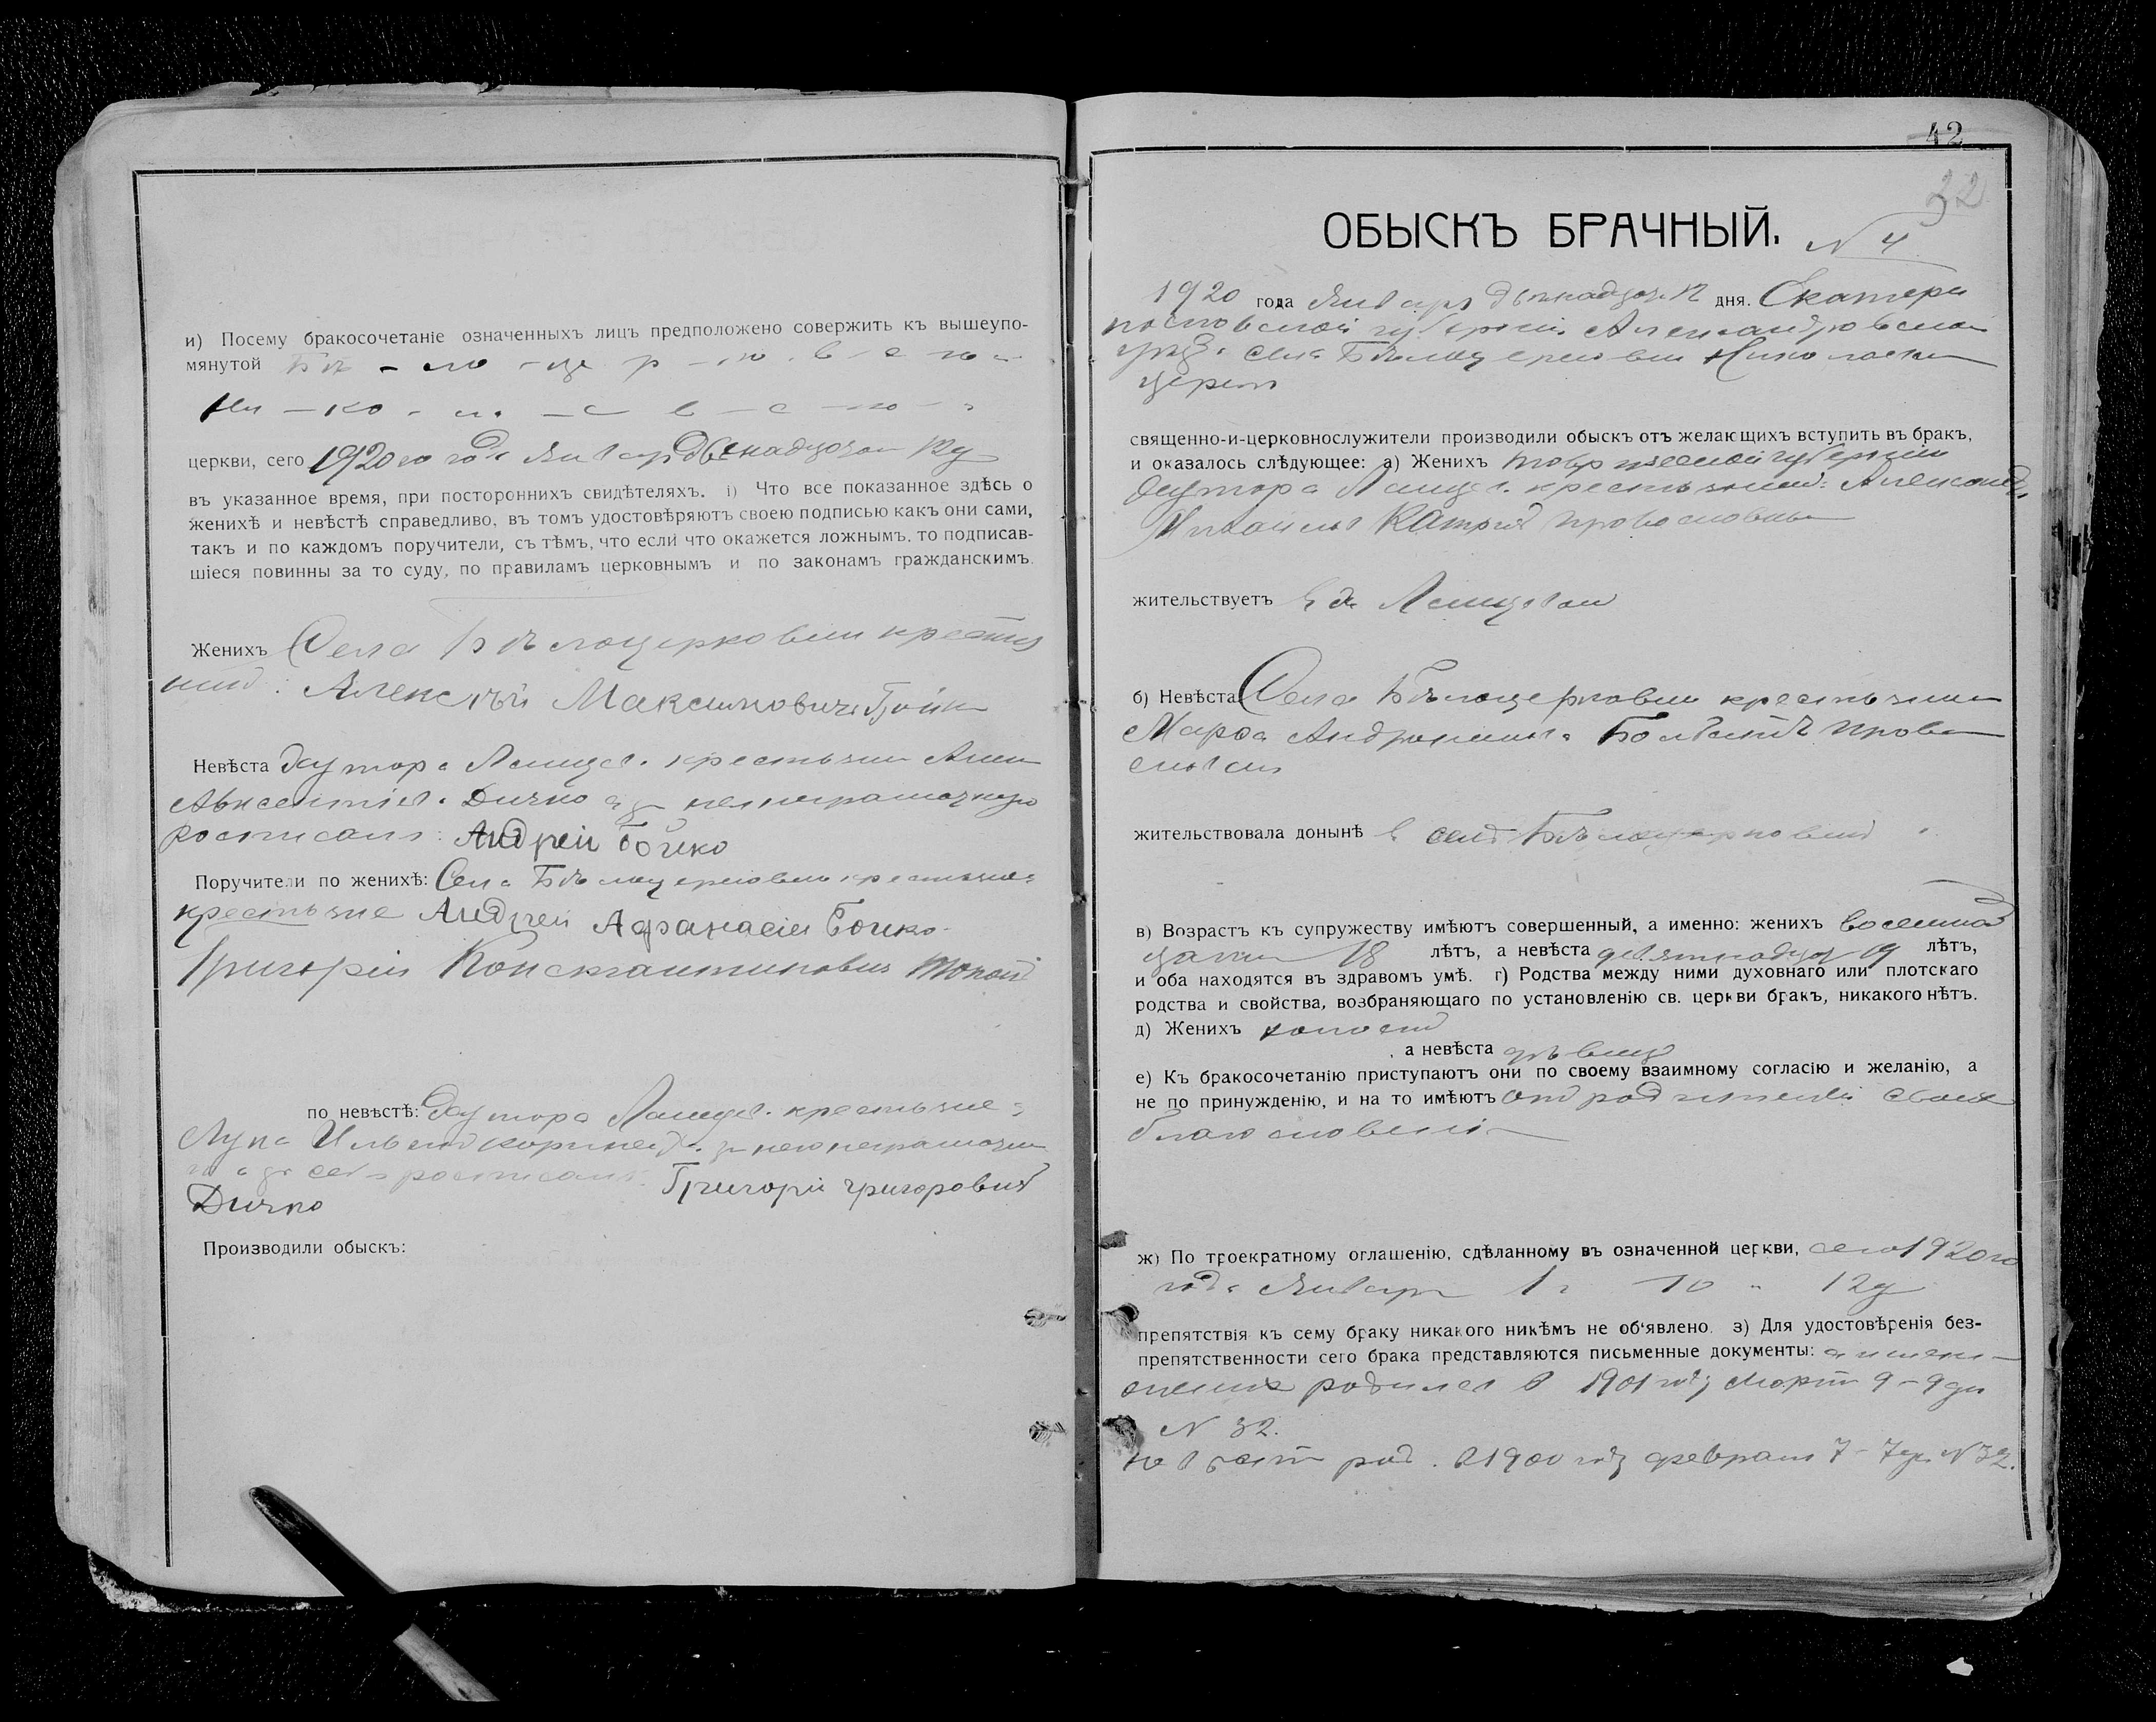 и) Посему бракосочетаніе означенныхъ лицъ предположено совержить къ вышеупо-
мянутой Бѣ - ло - це р - ко - в - с ко -
Ни - ко - ла - с в - с - ко -
церкви, сего 1920 го года Января двенадцатаго 12 д
въ указанное время, при постороннихъ свидѣтеляхъ. і) Что все показанное здѣсь о
женихѣ и невѣстѣ справедливо, въ томъ удостовѣряютъ своею подписью какъ они сами,
такъ и по каждомъ поручители, съ тѣмъ, что если что окажется ложнымъ, то подписав-
шіеся повинны за то суду, по правиламъ церковнымъ и по законамъ гражданскимъ.
Женихъ Села Бѣлоцерковки крестья
нинъ: Алексѣй Максимовичъ Бойко
Невѣста Хутора крестьян Анна
Авксентіев. Дичко а за неграмотную
росписался: Андрей Бойко
Поручители по женихѣ: Села Бѣлоцерковки крестьяне:
крестьяне Андрей Афанасіи Бойко
Григорій Константиновичъ
по невѣстѣ: Хутора крестьяне:
Лука за него неграмотна
го а за себя росписался: Григорій Григоровичъ
Дичко
Производили обыскъ:
42
32
ОБЫСКЪ БРАЧНЫЙ. N 4
1920 года Января двенадцат 12 дня. Екатери
нославской губерніи Александровскаго
уѣзд. села Бѣлоцерковки Николаевск
церкви
священно-и-церковнослужители производили обыскъ отъ желающихъ вступить въ бракъ,
и оказалось слѣдующее: а) Женихъ Таврической губерніи
Хутора крестьянинъ: Александ.
Михаиловъ православный
жительствуетъ в х.
б) Невѣста Села Бѣлоцерковки крестьянка
Марфа Андроникова Право
славная
жительствовала донынѣ в селѣ Бѣлоцерковкѣ
в) Возрастъ къ супружеству имѣютъ совершенный, а именно: женихъ восемнад
цать 18 лѣтъ, а невѣста девятнадцат 19 лѣтъ,
и оба находятся въ здравомъ умѣ. г) Родства между ними духовнаго или плотскаго
родства и свойства, возбраняющаго по установленію св. церкви бракъ, никакого нѣтъ.
д) Женихъ холостъ
, а невѣста дѣвица
е) Къ бракосочетанію приступаютъ они по своему взаимному согласію и желанію, а
не по принужденію, и на то имѣютъ отъ родителей своихъ
благословеніе
ж) По троекратному оглашенію, сдѣланному въ означенной церкви, сего 1920 го
года Января 1 - 10 - 12 д
препятствія къ сему браку никакого никѣмъ не об'явлено. з) Для удостовѣренія без-
препятственности сего брака представляются письменные документы: а именно
женихъ родился в 1901 году Марта 9 - 9 дн
N 32.
невѣста род. в 1900 году февраля 7 - 7 дн N 32.